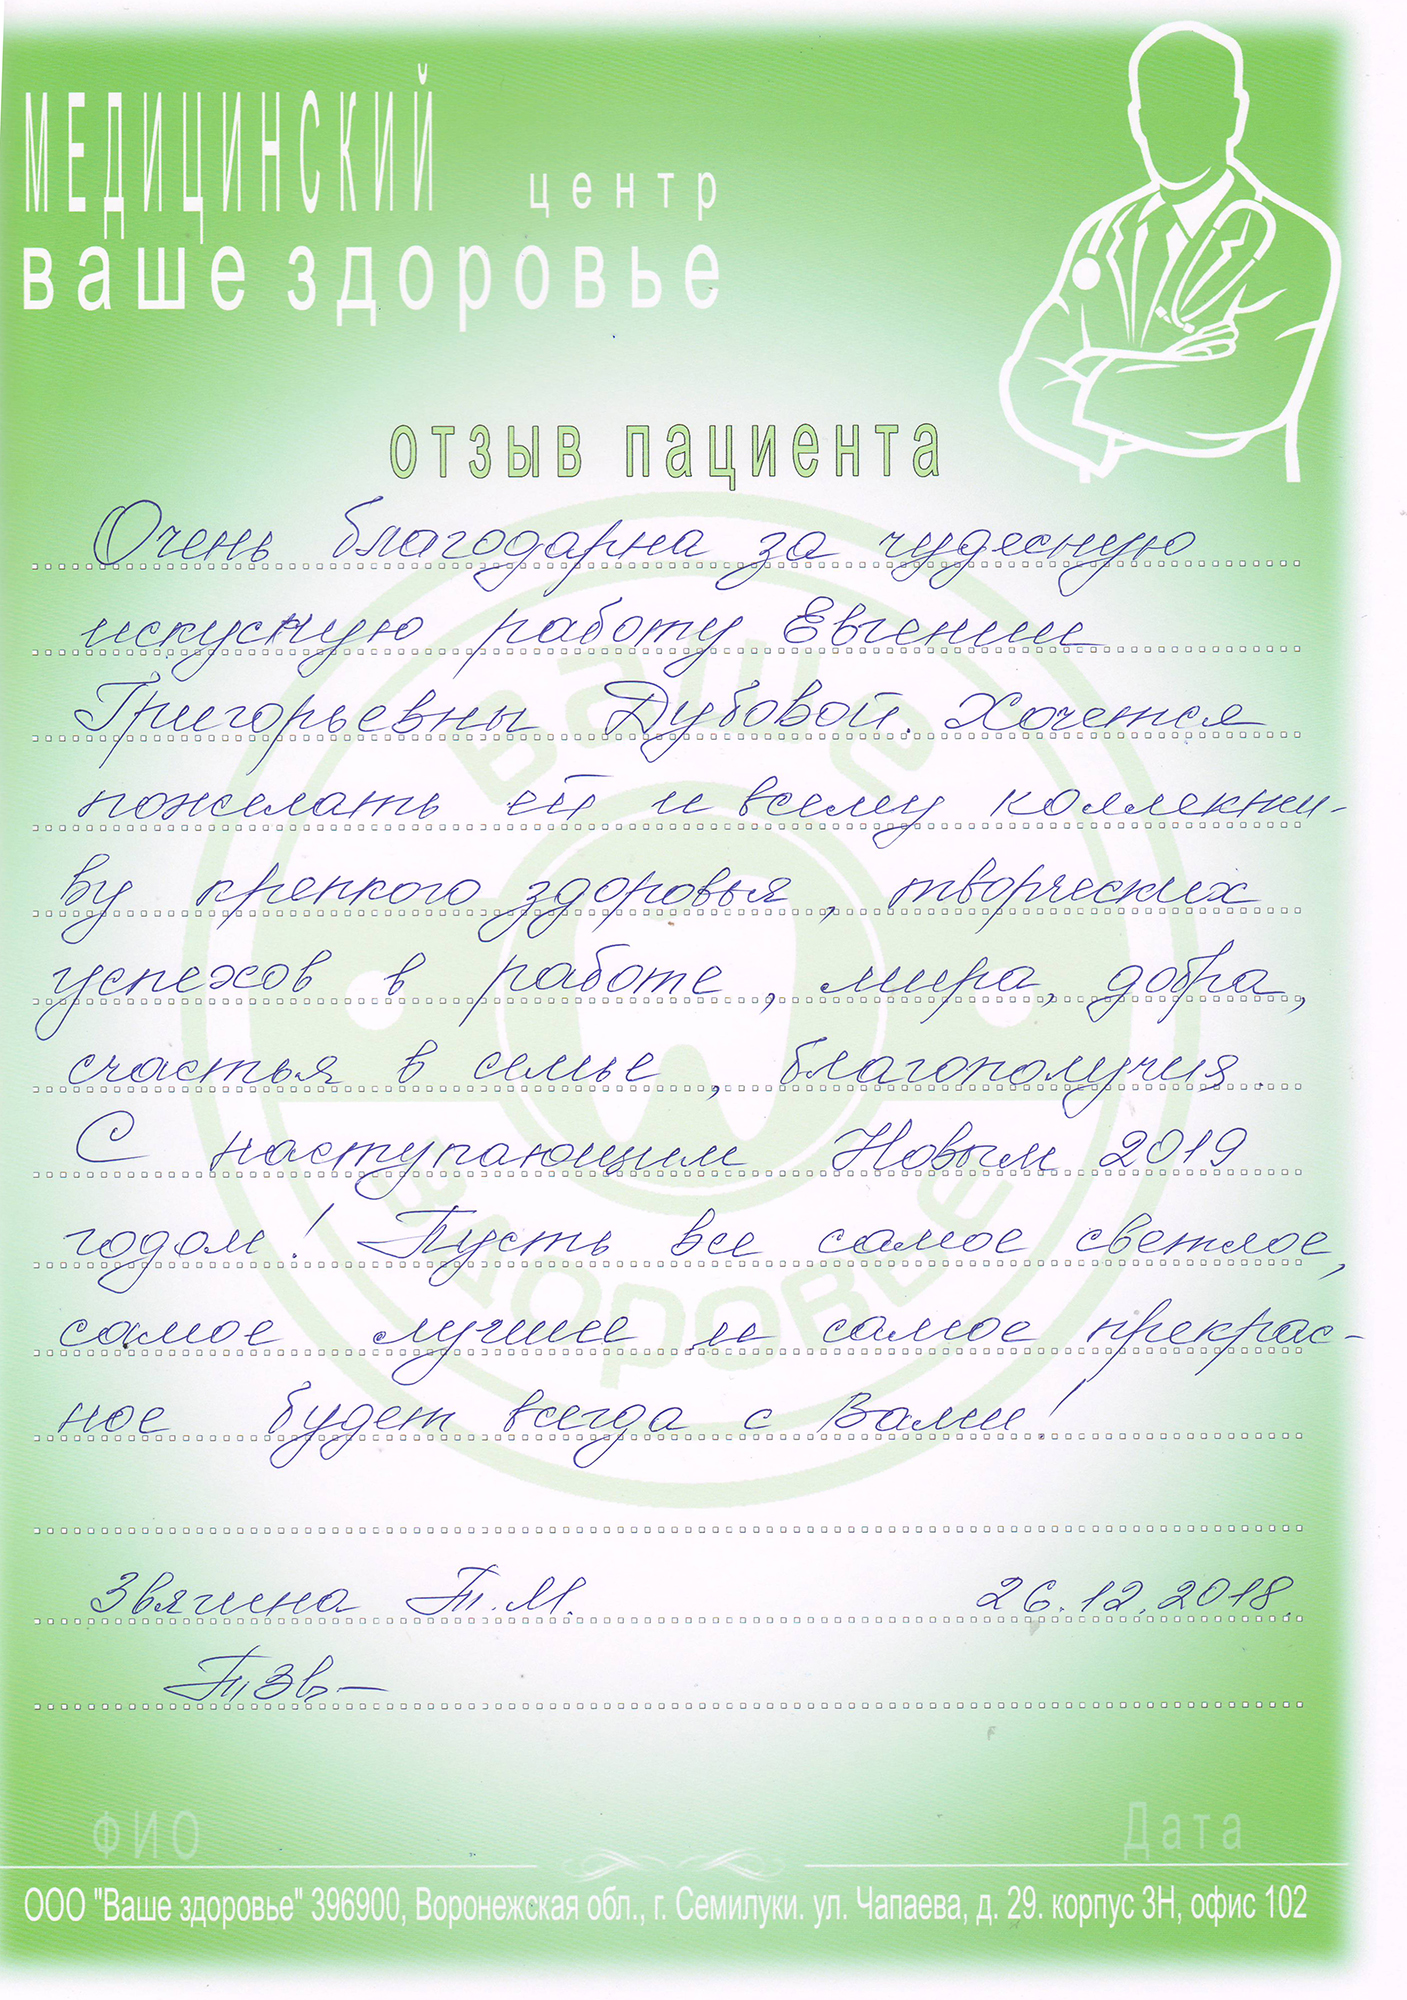 МЕДИЦИНСКИЙ центр
ваше здоровье
отзыв пациента
Очень благодарна за чудесную
искусную работу Евгении
Григорьевны Дубовой. Хочется
пожелать ей и всему коллекти-
ву крепкого здоровья, творческих
успехов в работе, мира, добра,
счастья в семье, благополучия.
С наступающим Новым 2019
годом! Пусть все самое светлое,
самое лучшее и самое прекрас-
ное будет всегда с Вами!
Звягина Т.М. 26.12.2018.
ТЗв
ФИО Дата
ООО "Ваше здоровье" 396900, Воронежская обл., г. Семилуки. ул. Чапаева, д. 29. корпус 3Н, офис 102
ВАШЕ
ЗДОРОВЬЕ